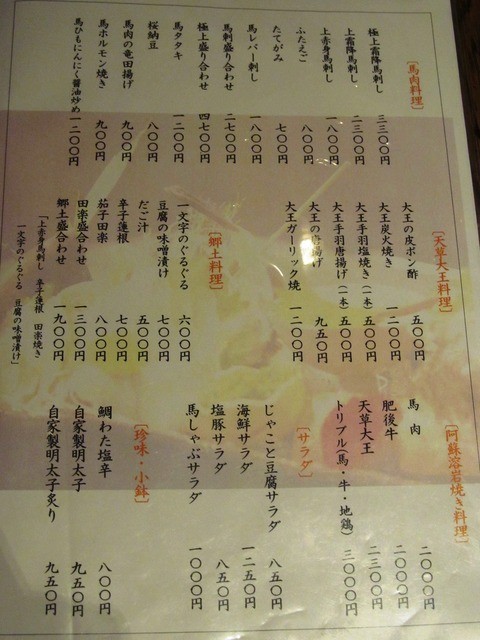 ［馬肉料理］
極上霜降馬刺し 三三〇〇円
上霜降馬刺し 二三〇〇円
上赤身馬刺し 一八〇〇円
ふたえご 八〇〇円
たてがみ 七〇〇円
馬レバー刺し 一八〇〇円
馬刺盛り合わせ 二七〇〇円
極上盛り合わせ 四七〇〇円
馬タタキ 一二〇〇円
桜納豆 八〇〇円
馬肉の竜田揚げ 九〇〇円
馬ホルモン焼き 九〇〇円
馬ひもにんにく醤油炒め 一二〇〇円
［天草大王料理］
大王の皮ポン酢 五〇〇円
大王炭火焼き 一二〇〇円
大王手羽塩焼き（一本） 五〇〇円
大王手羽唐揚げ（一本） 五〇〇円
大王の唐揚げ 九五〇円
大王ガーリック焼 一二〇〇円
［郷土料理］
一文字のぐるぐる 六〇〇円
豆腐の味噌漬け 七〇〇円
だご汁 五〇〇円
辛子蓮根 七〇〇円
茄子田楽 八〇〇円
田楽盛合わせ 一三〇〇円
郷土盛合わせ 一九〇〇円
「上赤身馬刺し 辛子蓮根 田楽焼き
一文字のぐるぐる 豆腐の味噌漬け」
［阿蘇溶岩焼き料理］
馬肉 二〇〇〇円
肥後牛 二〇〇〇円
天草大王 二三〇〇円
トリプル（馬・牛・地鶏） 三〇〇〇円
［サラダ］
じゃこと豆腐サラダ 八五〇円
海鮮サラダ 一二五〇円
塩豚サラダ 八五〇円
馬しゃぶサラダ 一〇〇〇円
［珍味・小鉢］
鯛わた塩辛 八〇〇円
自家製明太子 九五〇円
自家製明太子炙り 九五〇円